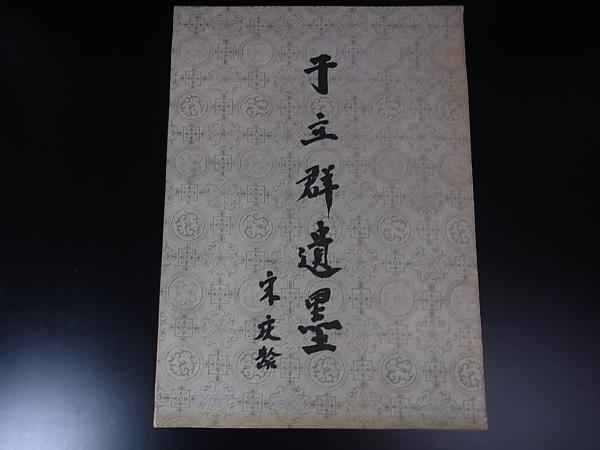 于立群遗墨
宋庆龄